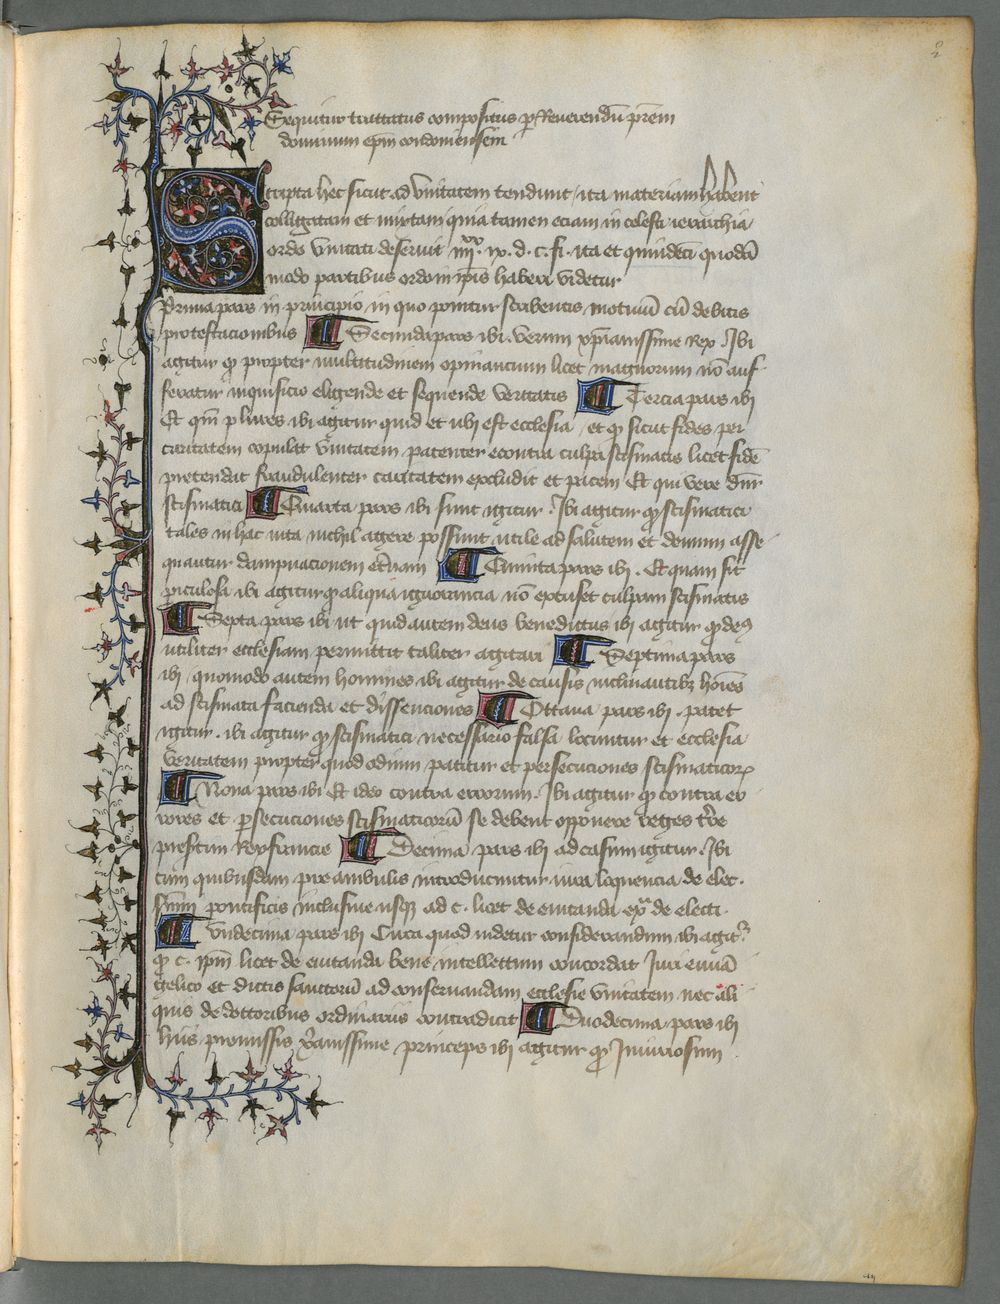 2
Sequitur tractatus compositus p Reverendū prēm
dominum epm condomiensem
Scripta hec sicut ad unitatem tendunt ita materiam habent
colligatam et mixtam quia tamen eciam in celesti ierarchia
ordo unitati deservit ix. d. c. fi. ita et quidem quodā
modo partibus ordo in ipis haberi videtur
Prima pars in principio in quo ponitur scribentis motivū cū debitis
protestacionibus Secunda pars ibi. verum xpianissime Rex. Ibi
agitur qp propter multitudinem opinancium licet magnorum nō auf
feratur inquisicio eligende et sequende veritatis Tercia pars ibi
Et qm plures ibi agitur quid et ubi est ecclesia et qp sicut fides per
caritatem copulat unitatem patenter econtra culpa scismatis licet fidē
pretendat fraudulenter caritatem excludit et pacem Et qui vere dnr
scismatici Quarta pars ibi sunt igitur. Ibi agitur qp scismatici
tales in hac vita nichil agere possunt utile ad salutem et demum asse
quantur dampnacionem etnam Quinta pars ibi. Et quam sit
piculosa ibi agitur qp aliqua ignorancia nō excuset culpam scismatis
Sexta pars ibi ut quid autem deus benedictus ibi agitur qp deus
utiliter ecclesiam permittit taliter agitari Septima pars
ibi quomodo autem homines ibi agitur de causis inclinantibz hoīes
ad scismata facienda et dissenciones Octava pars ibi. patet
igitur. ibi agitur qp scismatici necessario falsa locuntur et ecclesia
veritatem propter quod odium patitur et persecuciones scismaticor
Nona pars ibi Et ideo contra errorum. Ibi agitur qp contra er
rores et psecuciones scismaticorū se debent opponere reges tre
presertim Rex francie Decima pars ibi ad casum igitur. Ibi
cum quibusdam preambulis introducuntur iura loquencia de elec
summi pontificis inclusive usqz ad c. licet de evitanda. ex de electi.
Undecima pars ibi Circa quod videtur considerandum ibi agit
qp c. ipm licet de evitanda bene intellectum concordat Juri euuā
gelico et dictis sanctorū ad conservandam ecclesie unitatem nec ali
quis de doctoribus ordinariis contradicit Duodecima pars ibi
Huis premissis xpianissime princeps ibi agitur qp Iniuriosum